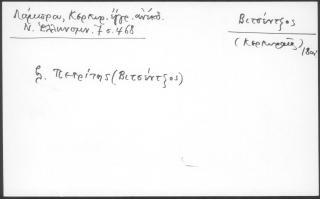 Λάμπρου, Κερκυρ. ἔγγρ. ἀνέκδ.
Ν. Ἑλληνομν. 7 σ. 468
Βιτσέντζος
(Κερκυραῖος)
18ος
ξ. Πετρίτης (Βιτσέντζος)